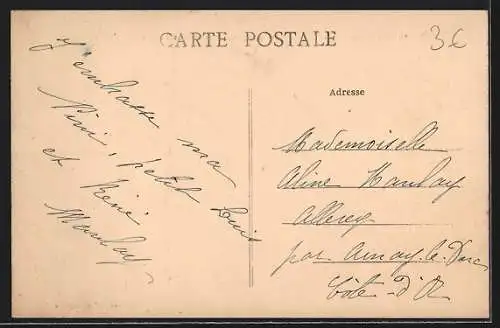 CARTE POSTALE
3€
J'embrasse ma
Nini, petit Louis
et René
Adresse
Mademoiselle
Aline
Allerey
par Arnay-le-Duc
Côte-d'Or